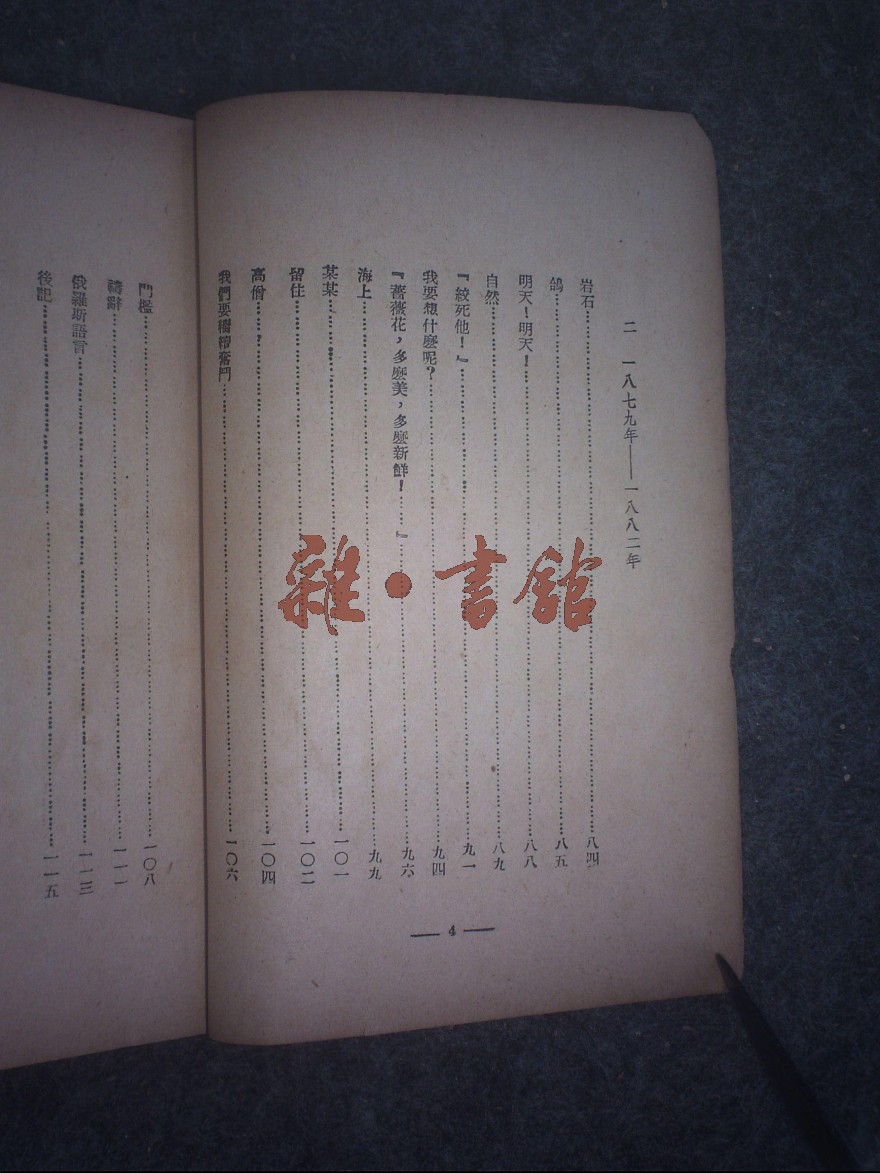 二 一八七九年——一八八二年
岩石……八四
鴿……八五
明天！明天！……八八
自然……八九
『絞死他！』……九一
我要想什麽呢？……九四
『薔薇花，多麽美，多麽新鮮！……』……九六
海上……九九
某某……一〇一
留住……一〇二
高僧……一〇四
我們要繼續奮鬥……一〇六
— 4 —
門檻……一〇八
禱辭……一一一
俄羅斯語言……一一三
後記……一一五
雜·書館